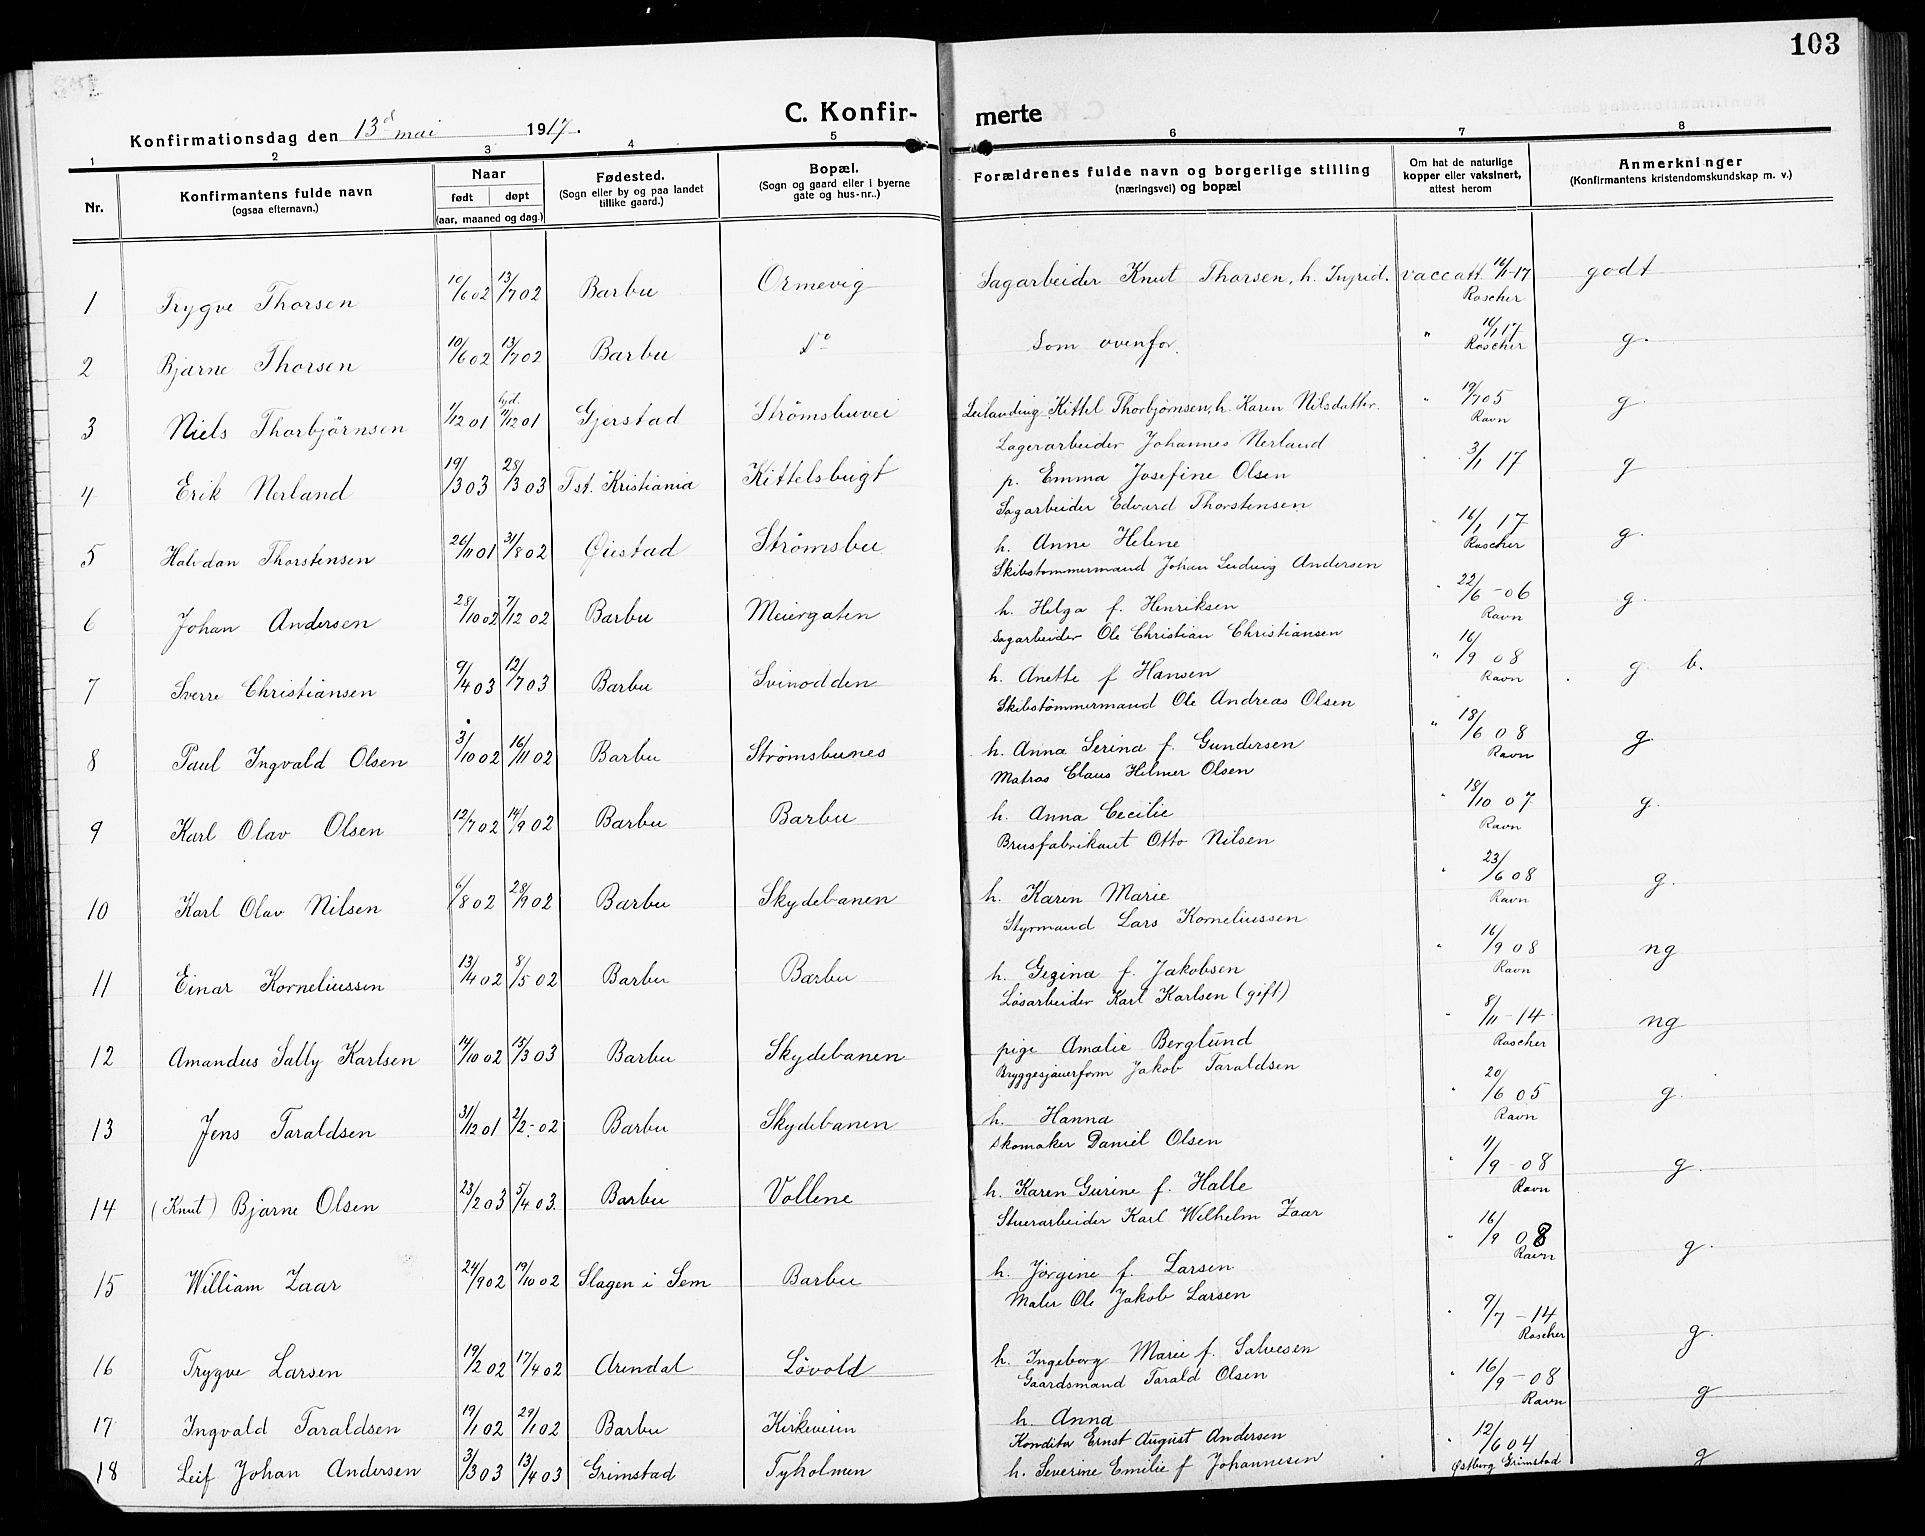 103
C. Konfir- merte
Konfirmationsdag den 13d mai 1917.
1 2 3 4 5 6 7 8
Nr.
Konfirmantens fulde navn (ogsaa efternavn.)
Naar født døpt (aar, maaned og dag.)
Fødested. (Sogn eller by og paa landet tillike gaard.)
Bopæl. (Sogn og gaard eller i byerne gate og hus-nr..)
Forældrenes fulde navn og borgerlige stilling (næringsvei) og bopæl
Om hat de naturlige kopper eller vaksinert, attest herom
Anmerkninger (Konfirmantens kristendomskundskap m. v.)
1 Trygve Thorsen 10/6 02 13/7 02 Barbu Ormevig Sagarbeider Knut Thorsen, h. Ingrid. vaccatt. 16/1-17 Rascher godt
2 Bjarne Thorsen 10/6 02 13/7 02 Barbu do Som ovenfor. " 16/1 17 Rascher g.
3 Niels Thorbjörnsen 1/12 01 hjd. 11/12 01 Gjerstad Strømsbuvei Leilænding Kittel Thorbjørnsen, h. Karen Nilsdatter. " 19/7 05 Ravn g.
Lagerarbeider Johannes Nerland
4 Erik Nerland 19/3 03 28/3 03 Tst. Kristiania Kittelsbugt p. Emma Josefine Olsen " 3/1 17 g
Sagarbeider Edvard Thorstensen
5 Halvdan Thorstensen 26/11 01 31/8 02 Øiestad Strømsbu h. Anne Helene " 16/1 17 Rascher g.
Skibstømmermand Johan Ludvig Andersen
6 Johan Andersen 28/10 02 7/12 02 Barbu Meiergaten h. Helga f. Henriksen " 22/6-06 Ravn g.
Sagarbeider Ole Christian Christiansen
7 Sverre Christiansen 9/4 03 12/7 03 Barbu Svinodden h. Anette f Hansen " 16/9 08 Ravn g. b.
Skibstømmermand Ole Andreas Olsen
8 Paul Ingvald Olsen 3/10 02 16/11 02 Barbu Strømsbunes h. Anna Serina f. Gundersen " 18/6 08 Ravn g.
Matros Claus Helmer Olsen
9 Karl Olav Olsen 12/7 02 14/9 02 Barbu Barbu h. Anna Cecilie " 18/10 07 Ravn g.
Brusfabrikant Otto Nilsen
10 Karl Olav Nilsen 6/8 02 28/9 02 Barbu Skydebanen h. Karen Marie " 23/6 08 Ravn g.
Styrmand Lars Korneliussen
11 Einar Korneliussen 13/4 02 8/5 02 Barbu Barbu h. Gezina f. Jakobsen " 16/9 08 Ravn ng
Løsarbeider Karl Karlsen (gift)
12 Amandus Sally Karlsen 14/10 02 15/3 03 Barbu Skydebanen pige Amalie Berglund " 8/11-14 Rascher ng
Bryggesjauerform Jakob Taraldsen
13 Jens Taraldsen 31/12 01 2/2-02 Barbu Skydebanen h. Hanna " 20/6 05 Ravn g.
Skomaker Daniel Olsen
14 (Knut) Bjarne Olsen 23/2 03 5/4 03. Barbu Vollene h. Karen Gurine f. Halle " 11/9-08 Ravn g.
Stuerarbeider Karl Wilhelm Zaar
15 William Zaar 24/9 02 19/10 02 Slagen i Sem Barbu h. Jørgine f. Larsen " 16/9 08 Ravn g.
Maler Ole Jakob Larsen
16 Trygve Larsen 19/2 02 17/4 02 Arendal Løvold h. Ingeborg Marie f. Salvesen " 9/7-14 Rascher g.
Gaardsmand Tarald Olsen
17 Ingvald Taraldsen 19/1 02 29/1 02 Barbu Kirkeveien h. Anna " 16/9-08 Ravn g
Konditor Ernst August Andersen
18 Leif Johan Andersen 3/3 03 13/4 03 Grimstad Tyholmen h. Severine Emilie f Johannesen " 12/6 04 Østberg Grimstad g